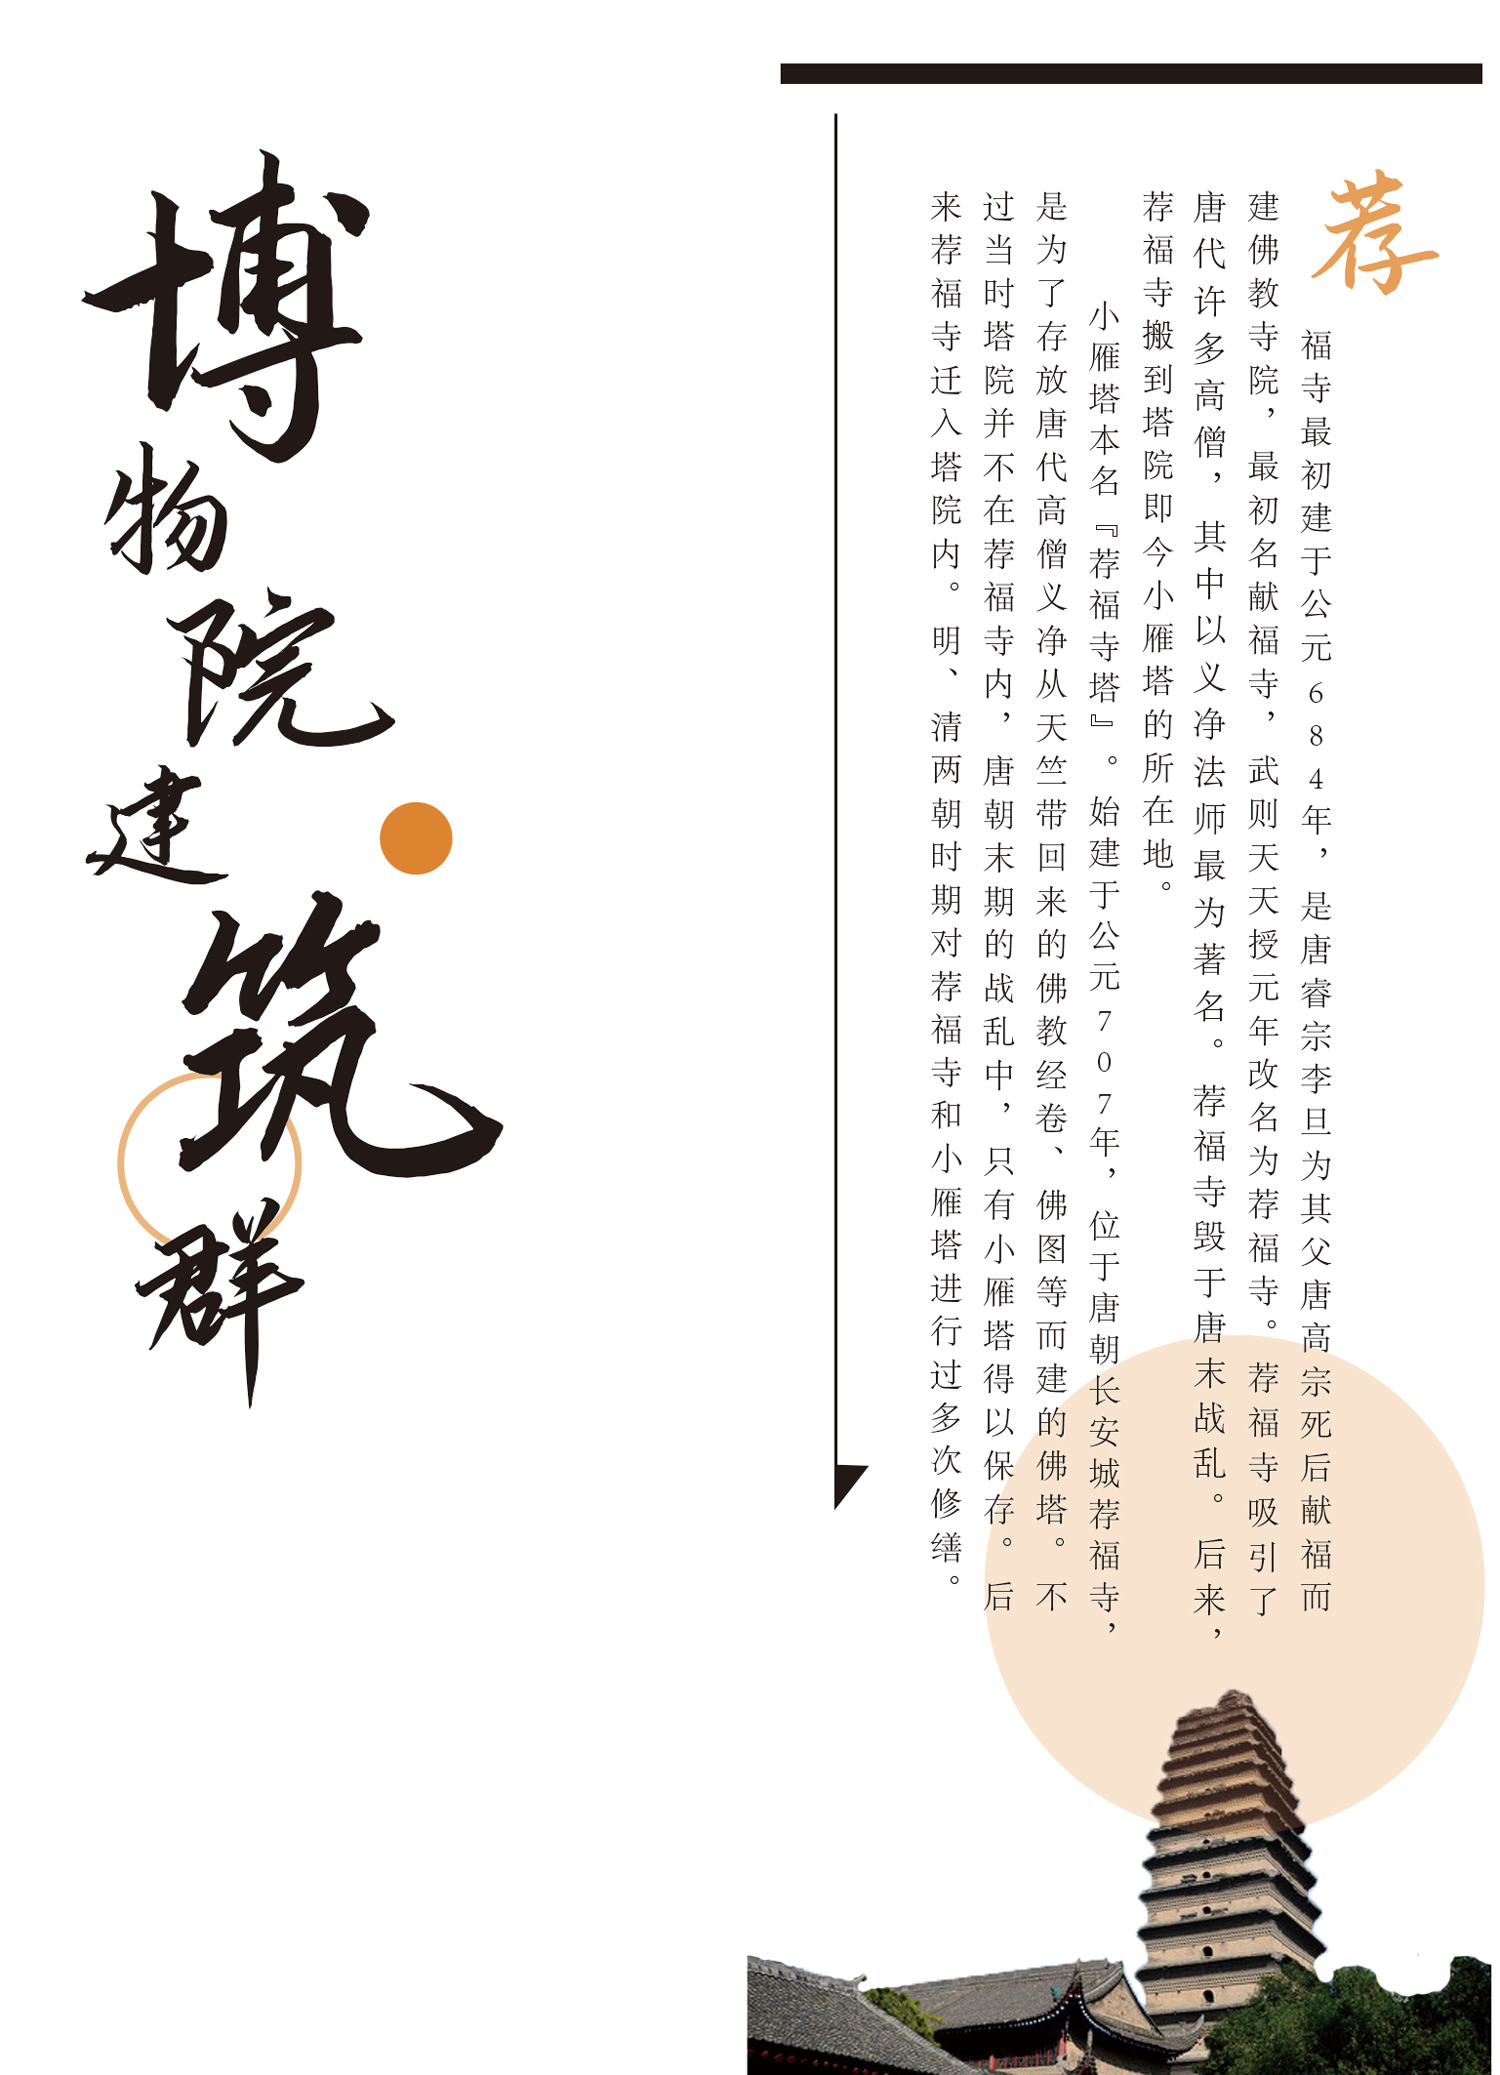 荐
福寺最初建于公元684年，是唐睿宗李旦为其父唐高宗死后献福而
建佛教寺院，最初名献福寺，武则天天授元年改名为荐福寺。荐福寺吸引了
唐代许多高僧，其中以义净法师最为著名。荐福寺毁于唐末战乱。后来，
荐福寺搬到塔院即今小雁塔的所在地。
小雁塔本名『荐福寺塔』。始建于公元707年，位于唐朝长安城荐福寺，
是为了存放唐代高僧义净从天竺带回来的佛教经卷、佛图等而建的佛塔。不
过当时塔院并不在荐福寺内，唐朝末期的战乱中，只有小雁塔得以保存。后
来荐福寺迁入塔院内。明、清两朝时期对荐福寺和小雁塔进行过多次修缮。
博物院建筑群